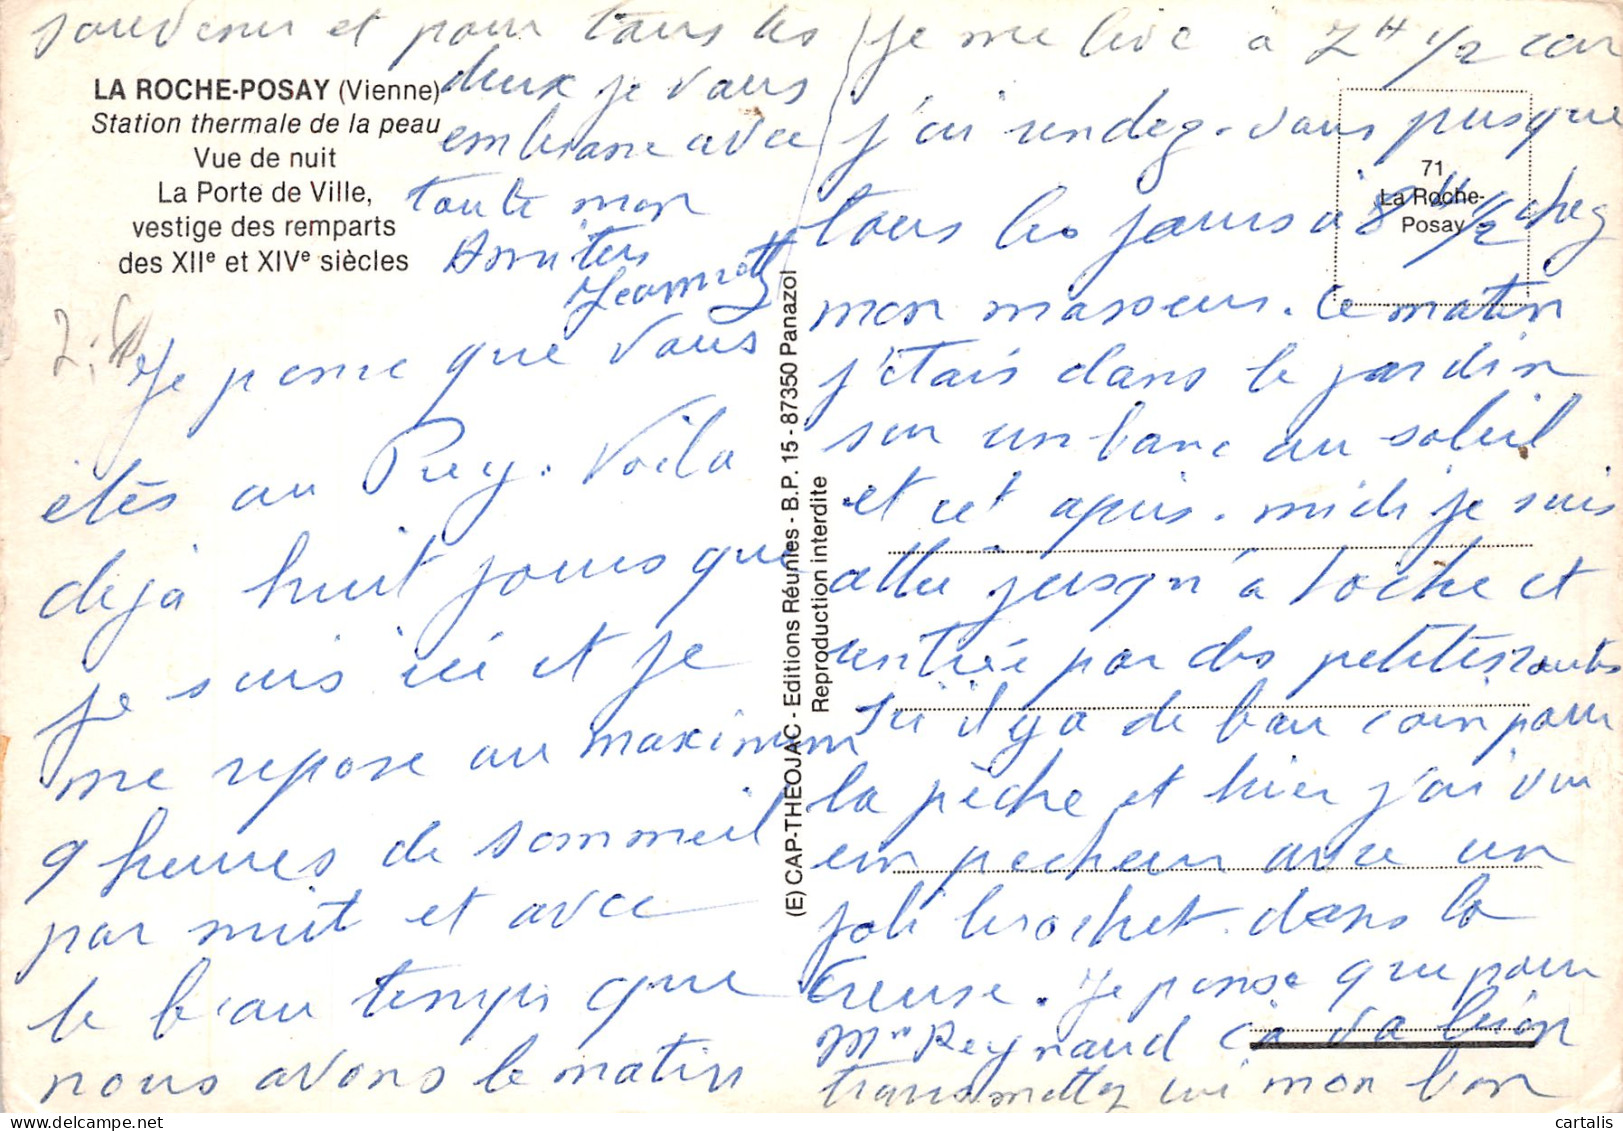 LA ROCHE-POSAY (Vienne)
Station thermale de la peau
Vue de nuit
La Porte de Ville,
vestige des remparts
des XIIe et XIVe siècles
Je pense que vous
étés au Puy. Voila
déjà huit jours que
je suis ici et je
me repose au maximum
9 heures de sommeil
par nuit et avec
le beau temps que
nous avons le matin
(E) CAP-THEOJAC - Editions Réunies - B.P. 15 - 87350 Panazol
Reproduction interdite
71
La Roche-
Posay
je me live à 7H 1/2 car
j'ai rendez-vous pusque
tous les jours à 8H 1/2 chez
mon masseur. Ce matin
j'étais dans le jardin
sur un banc au soleil
et cet apris-midi je suis
allée jusqu'à Roche et
rentrée par des petites routes
ici il y a de bau coin pour
la pèche et hier j'ai vu
un pecheur avec un
joli brochet dans la
Creuse. Je pense que pour
Mr Reynaud ça va bien
transmettez lui mon bon
souvenir et pour tous les
deux je vous
embrasse avec
toute mon
Amities
Jeannette